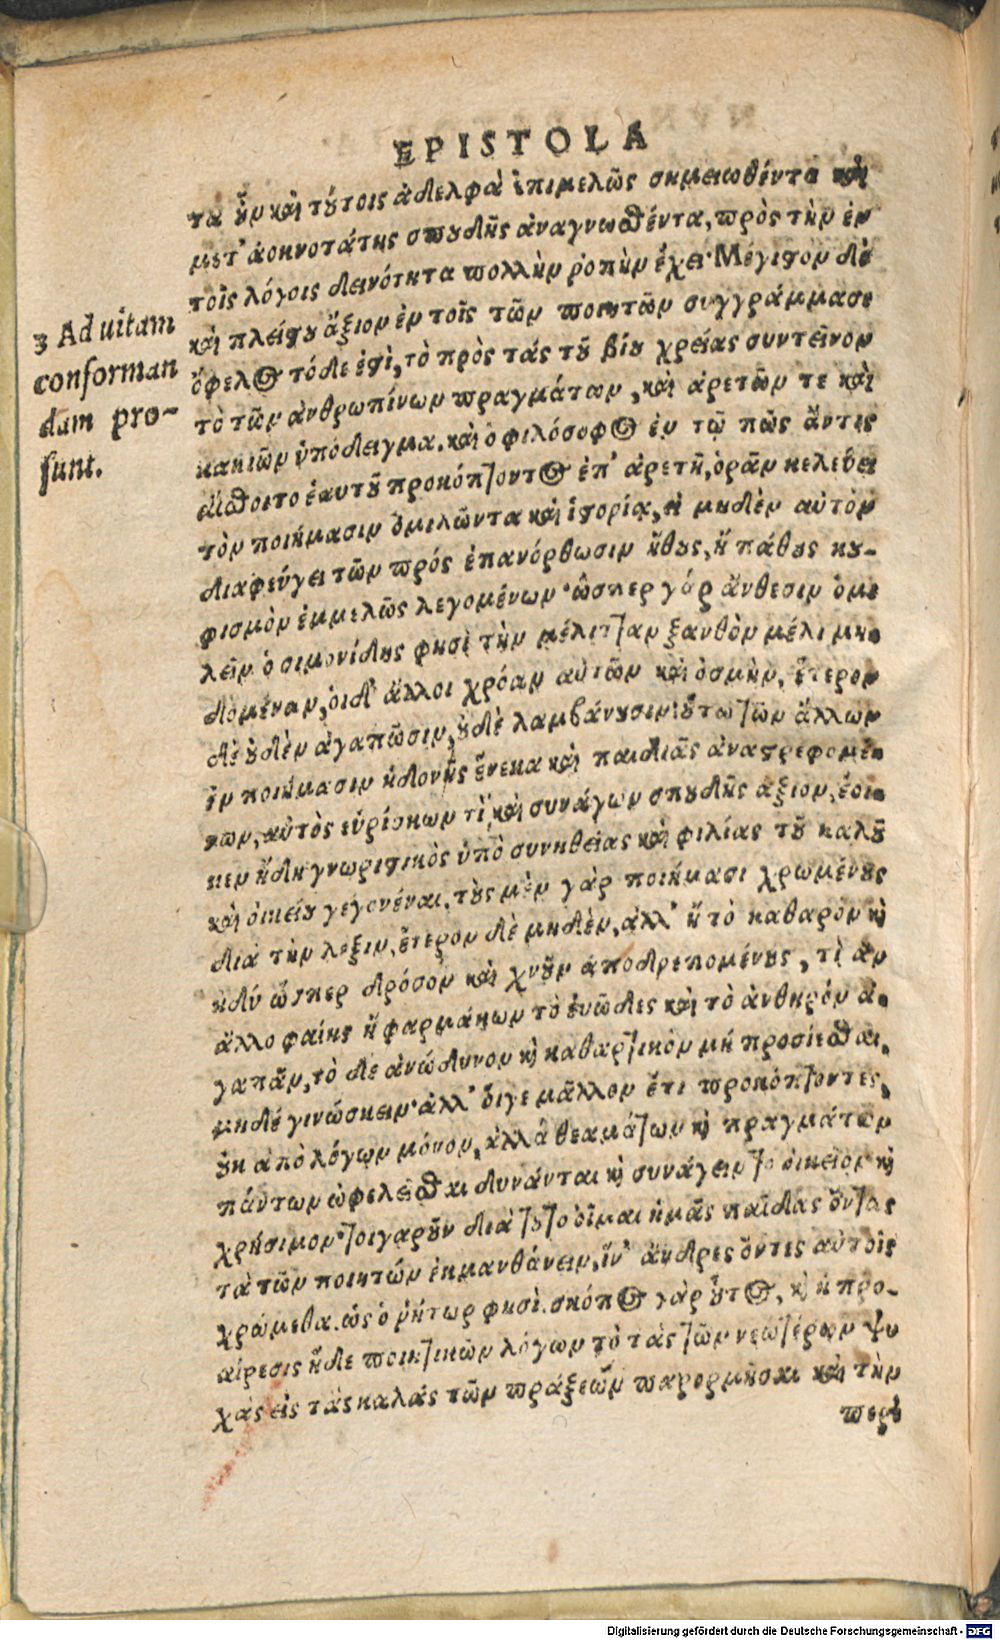 EPISTOLA
τα οὖν καὶ τούτοις ἀδελφὰ ἐπιμελῶς σημειωθέντα καὶ
μετ' ἀοκνοτάτης σπουδῆς ἀναγνωσθέντα, πρὸς τὴν ἐν
τοῖς λόγοις δεινότητα πολλὴν ῥοπὴν ἔχει. Μέγιστον δὲ
καὶ πλείστου ἄξιον ἐν τοῖς τῶν ποιητῶν συγγράμμασι
ὄφελος τόδε ἐστὶ, τὸ πρὸς τάς τοῦ βίου χρείας συντεῖνον
τὸ τῶν ἀνθρωπίνων πραγμάτων, καὶ ἀρετῶν τε καὶ
κακιῶν ὑπόδειγμα. καὶ ὁ φιλόσοφος ἐν τῷ πῶς ἄντις
αἴσθοιτο ἑαυτοῦ προκόπτοντος ἐπ' ἀρετῇ, ὁρᾶν κελεύει
τὸν ποιήμασιν ὁμιλῶντα καὶ ἱστορίᾳ, εἰ μηδὲν αὐτὸν
διαφεύγει τῶν πρός ἐπανόρθωσιν ἤθους, ἢ πάθους κου-
φισμὸν ἐμμελῶς λεγομένων. ὥσπερ γάρ ἄνθεσιν ὁμι
λεῖν ὁ σιμονίδης φησὶ τὴν μέλιτταν ξανθὸν μέλι μη-
δομέναν, οἱ δ' ἄλλοι χρόαν αὐτῶν καὶ ὀσμὴν, ἕτερον
δὲ οὐδὲν ἀγαπῶσιν, οὐδὲ λαμβάνουσιν: οὕτω τῶν ἄλλων
ἐν ποιήμασιν ἡδονῆς ἕνεκα καὶ παιδιᾶς ἀναστρεφομέ-
νων, αὐτὸς εὑρίσκων τὶ καὶ συνάγων σπουδῆς ἄξιον, ἔοι-
κεν ἤδη γνωριστικὸς ὑπὸ συνηθείας καὶ φιλίας τοῦ καλοῦ
καὶ οἰκείου γεγονέναι. τοὺς μὲν γὰρ ποιήμασι χρωμένους
διὰ τὴν λέξιν, ἕτερον δὲ μηδὲν, ἀλλ' ἢ τὸ καθαρὸν καὶ
ἡδύ ὥσπερ δρόσον καὶ χνοῦν ἀποδρεπομένους, τί ἂν
ἄλλο φαίης ἢ φαρμάκων τὸ εὐῶδες καὶ τὸ ἀνθηρόν ἀ-
γαπᾶν, τὸ δὲ ἀνώδυνον καὶ καθαρτικὸν μή προσίεσθαι,
μηδέ γινώσκειν. ἀλλ' οἵγε μᾶλλον ἔτι προκόπτοντες,
οὐκ ἀπὸ λόγων μόνον, ἀλλὰ θεαμάτων καὶ πραγμάτων
πάντων ὠφελεῖσθαι δυνάνται καὶ συνάγειν το οἰκεῖον καὶ
χρήσιμον. τοιγαροῦν διὰ τοῦτο οἶμαι ἡμᾶς παῖδας ὄντας
τὰ τῶν ποιητῶν ἐκμανθάνειν, ἵν' ἄνδρες ὄντες αὐτοῖς
χρώμεθα. ὡς ὁ ῥήτωρ φησὶ. σκόπος γὰρ οὗτος, καὶ ἡ προ-
αίρεσις ἥδε ποιητικῶν λόγων τὸ τὰς τῶν νεωτέρων ψυ
χὰς εἰς τὰς καλάς τῶν πράξεων παρορμῆσαι καὶ τὴν
περὶ
3 Ad uitam
conforman
dam pro-
sunt.
Digitalisierung gefördert durch die Deutsche Forschungsgemeinschaft - DFG